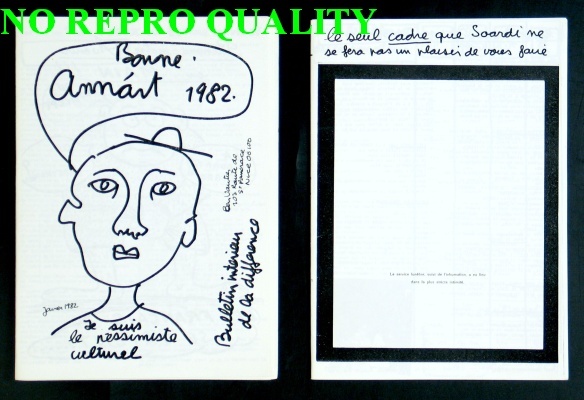 NO REPRO QUALITY
Bonne.
Annárt 1982.
Ben Vautier
103 Route de
St Pancrace
Nice 06100
Bulletin interieur
de la difference
Janvier 1982
Je suis
le pessimiste
culturel
le seul cadre que Soardi ne
se fera pas un plaisir de vous faire